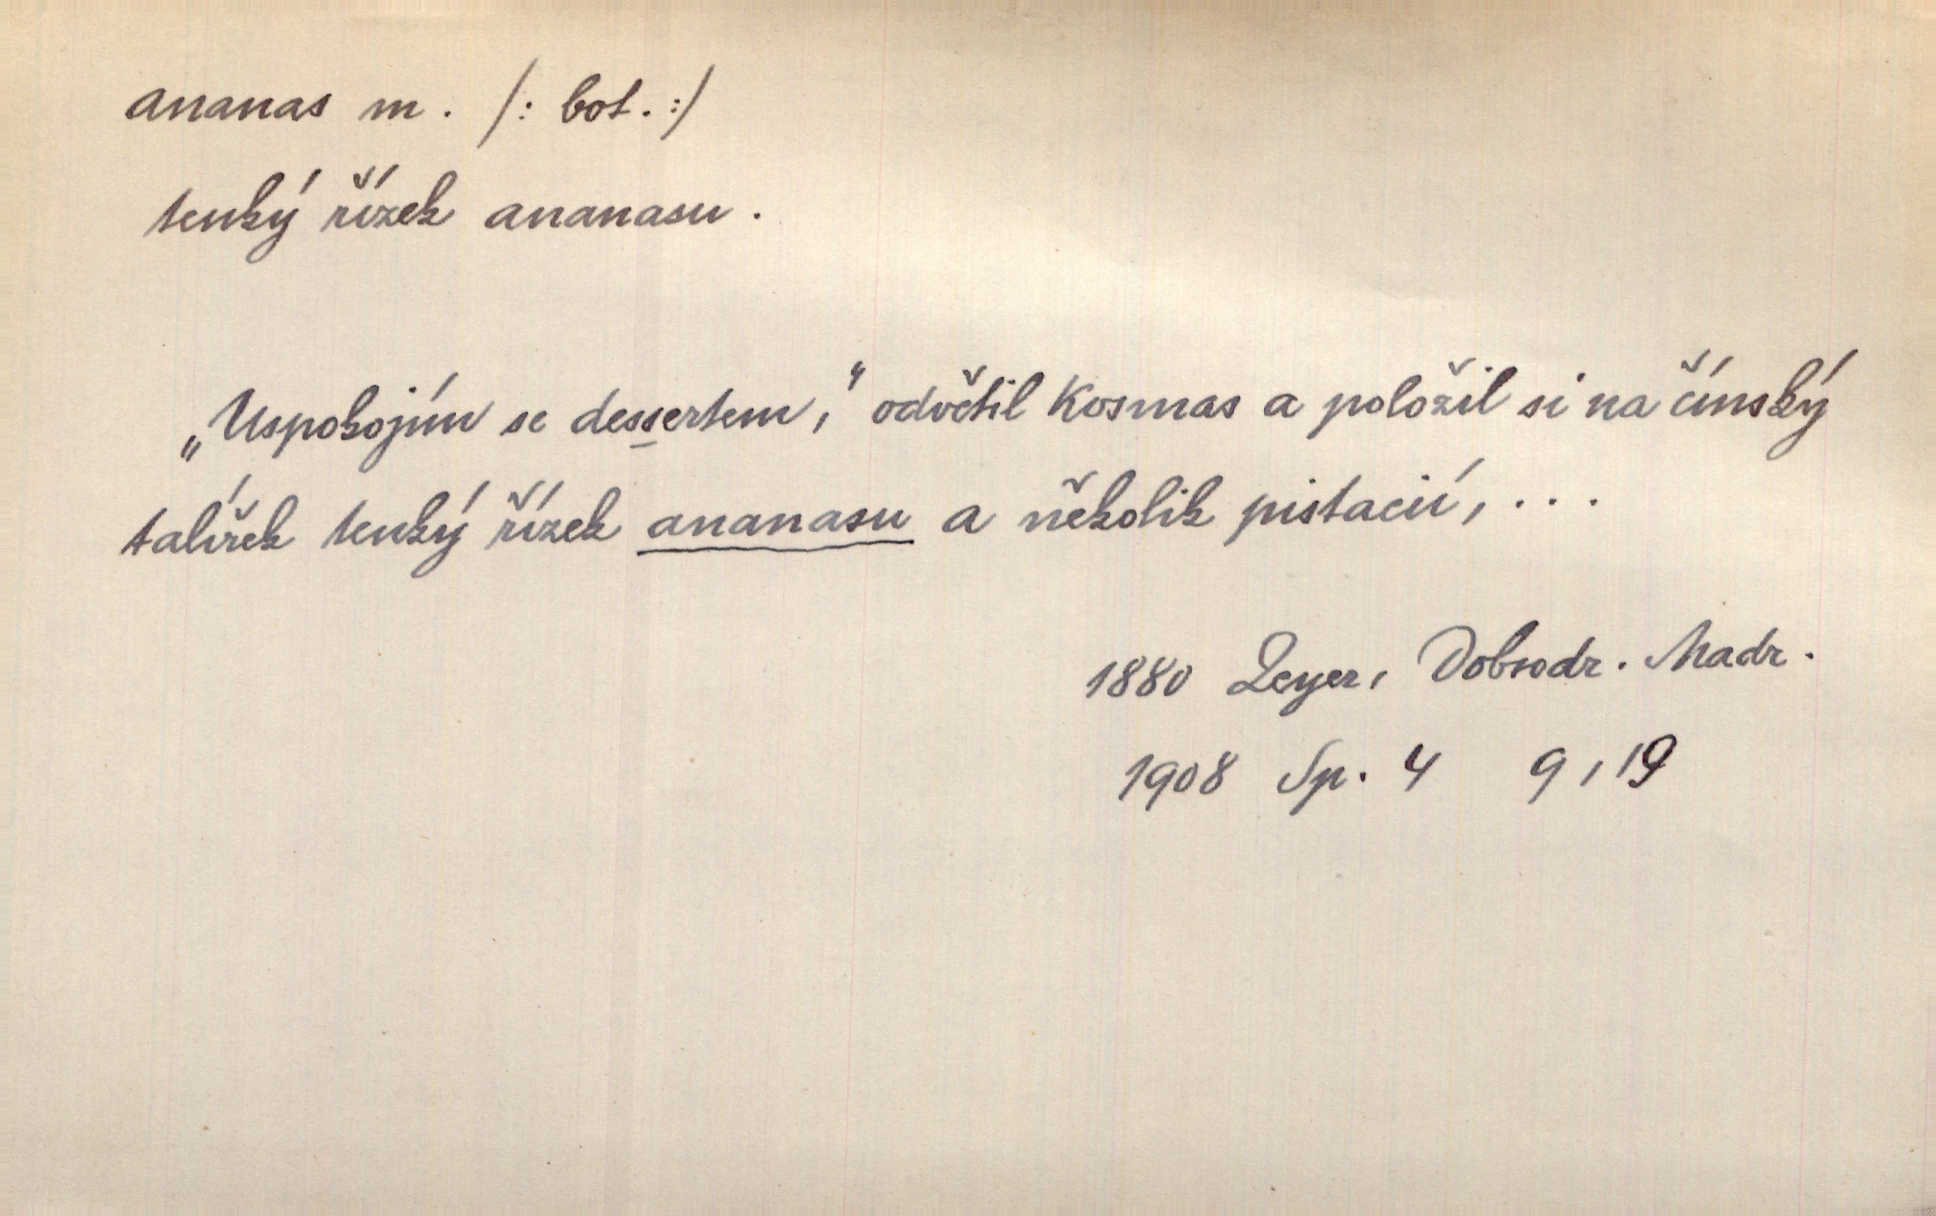 ananas m. /: bot. :/
tenký řízek ananasu.
„Uspokojím se dessertem,“ odvětil Kosmas a položil si na čínský
talířek tenký řízek ananasu a několik pistacií, ...
1880 Zeyer, Dobrodr. Madr.
1908 Sp. 4 9,19